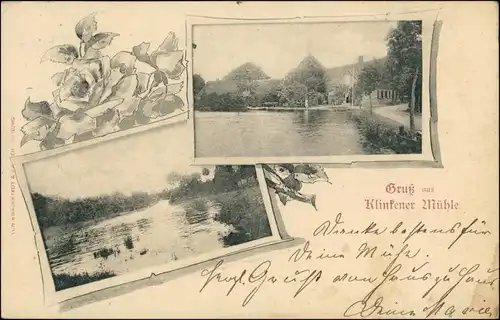 Gruß aus
Klinkener Mühle.
Danke bestens für
Deine Mühe.
Herzl. Gruß von Haus zu Haus
Deine Marie